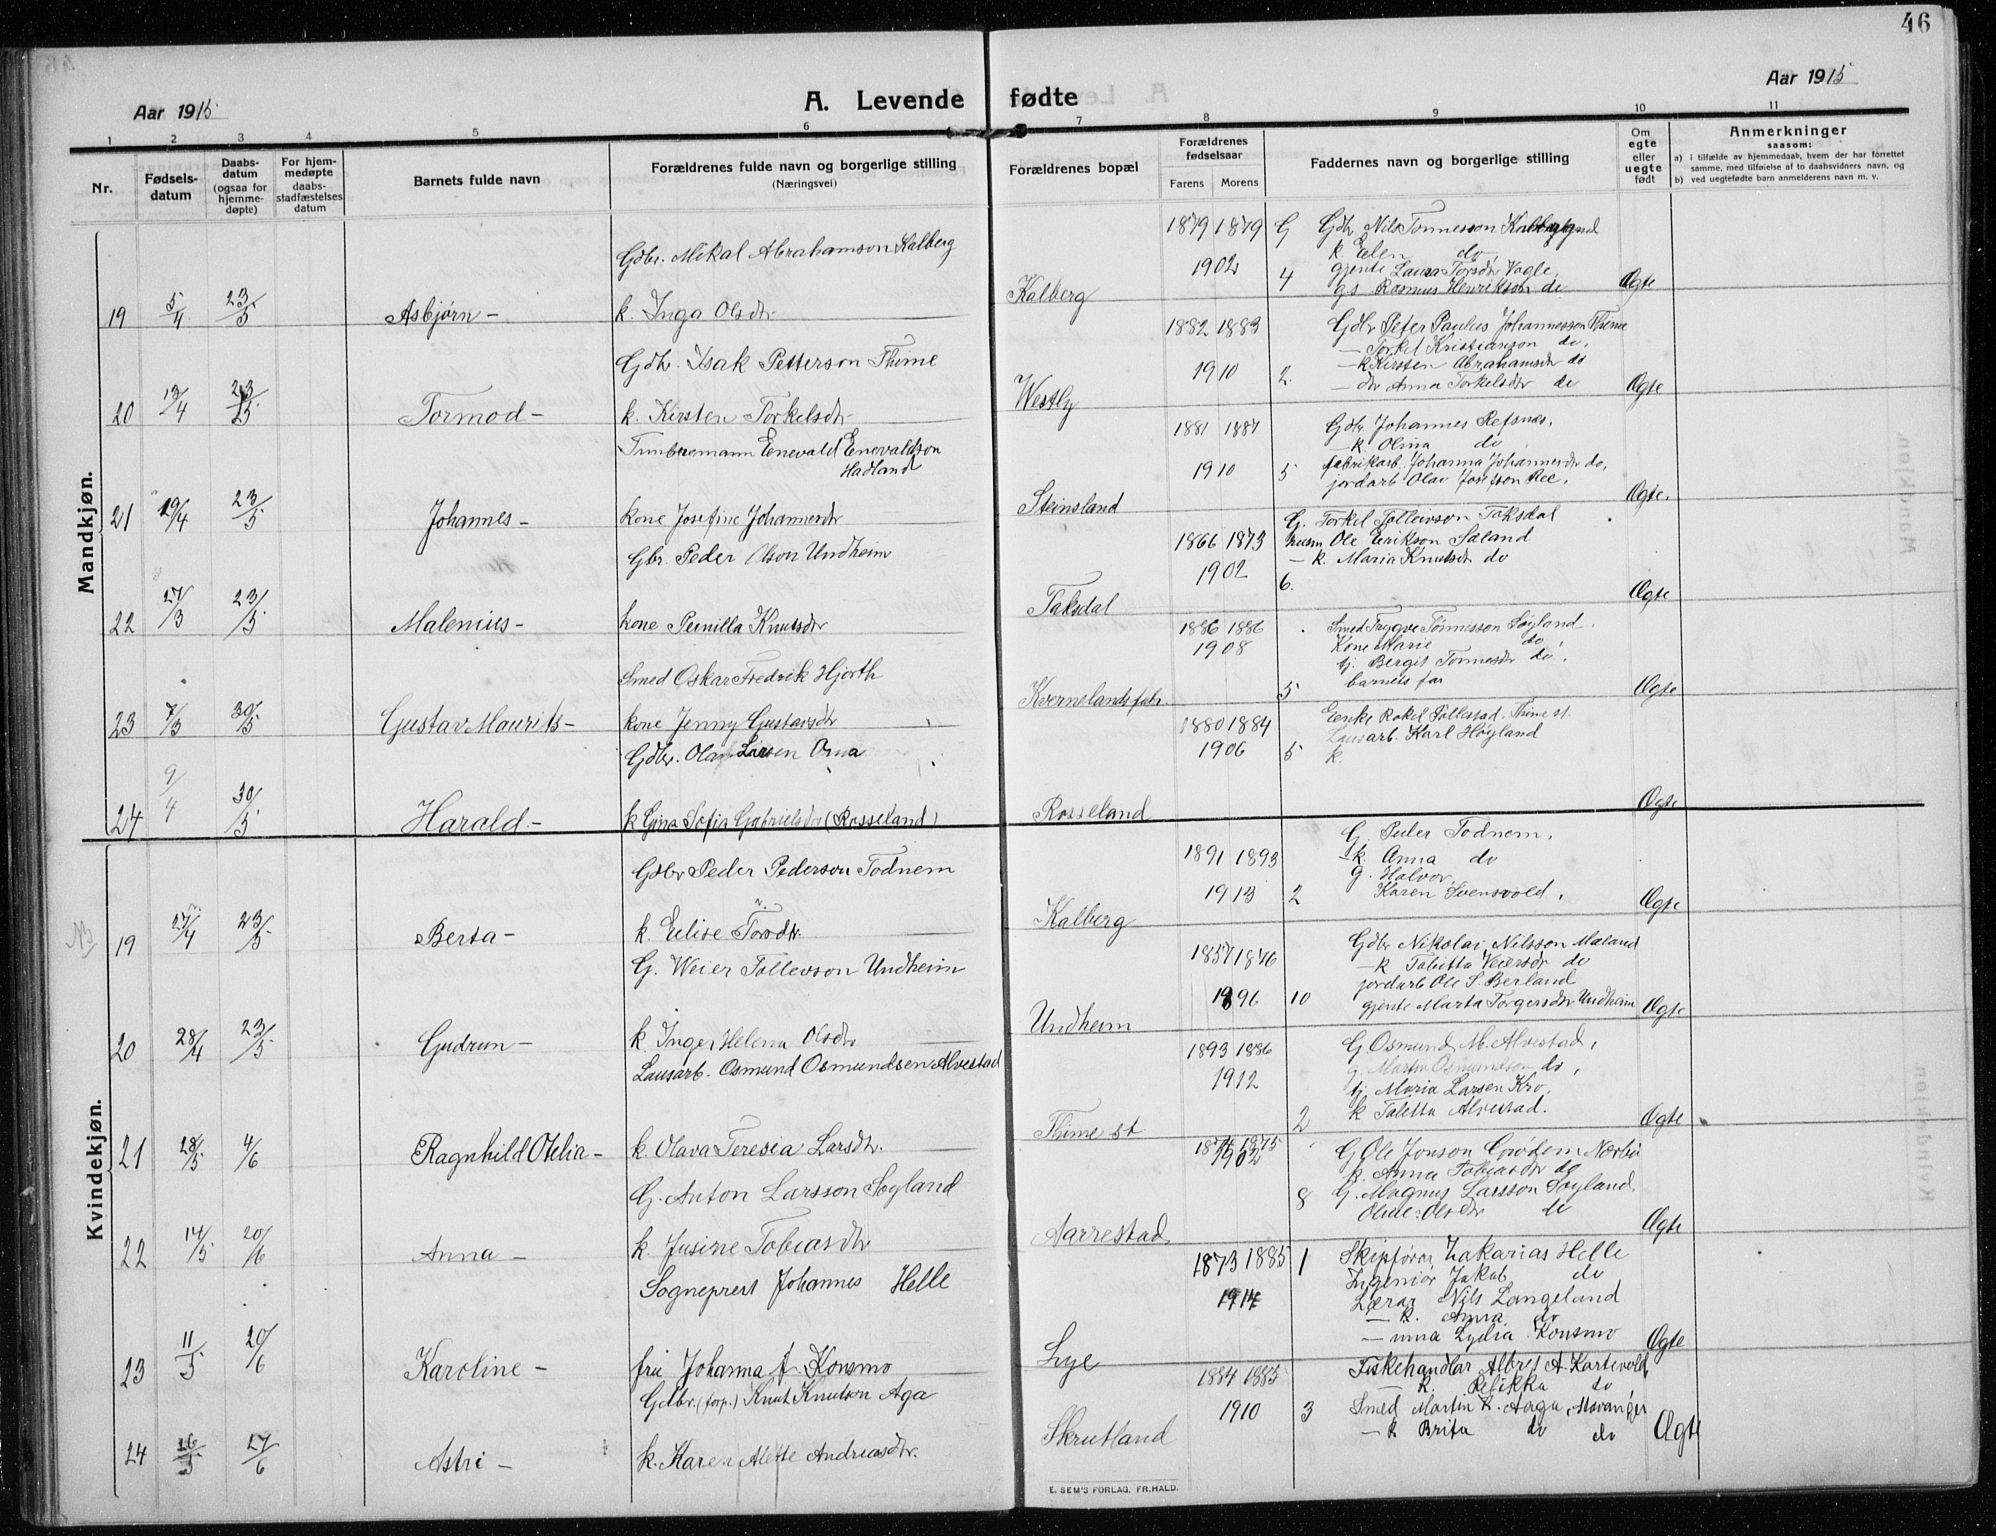 46
Aar 1915
A. Levende fødte
Aar 1915
1 2 3 4 5 6 7 8 9 10 11
Nr.
Fødsels-
datum
Daabs-
datum
(ogsaa for
hjemme-
døpte)
For hjem-
medøpte
daabs-
stadfæstelses
datum
Barnets fulde navn
Forældrenes fulde navn og borgerlige stilling
(Næringsvei)
Forældrenes bopæl
Forældrenes
fødselsaar
Farens Morens
Faddernes navn og borgerlige stilling
Om
egte
eller
uegte
født
Anmerkninger
saasom:
a) i tilfælde av hjemmedaab, hvem der har forrettet
samme, med tilføielse af to daabsvidners navn, og
b) ved uegtefødte barn anmelderens navn m. v.
Mandkjøn.
19 5/4 23/5 Asbjørn -
Gdbr. Mikal Abrahamson Kalberg
k. Inga Olsdtr.
Kalberg
1879 1879
1902 4
Gdbr. Nils Tønnesson
k. Elen do,
gjente Laura Torsdtr Vagle,
gs Rasmus Henrikson do
Ægte
20 13/4 23/5 Tormod -
Gdbr. Isak Petterson Thime
k. Kirsten Torkelsdtr
Westly
1882 1883
1910 2.
Gdbr Peter Paulus Johannesson Thime
- Torkel Kristianson do,
- k Kirsten Abrahamsdtr do
- dtr Anna Torkelsdtr do
Ægte
21 19/4 23/5 Johannes -
Timbremann Enevald Enevaldson
Hadland
kone Josefine Johannesdtr
Steinsland
1881 1887
1910 5
Gdbr Johannes Refsnæs,
- k. Olina do
fabrikarb. Johanna Johannesdtr do,
jordarb Olav Josefson Ree,
Ægte.
22 27/3 23/5 Malenius -
Gbr. Peder Olson Undheim
kone Pernilla Knutsdtr
Taksdal
1866 1873
1902 6.
G. Torkel Tolleivson Taksdal
Ole Erikson Sæland
- k. Maria Knutsdr do
Ægte
23 7/3 30/5 Gustav Maurits -
Smed Oskar Fredrik Hjorth
kone Jenny Gustavsdtr
Kvernelandsfabr.
1886 1886
1908 5
Smed Trygve Tønnesson Søyland.
Kone Marie do
tj. Bergit Tønnesdtr do,
barnets far
Ægte
24 9/4 30/5 Harald -
Gdbr. Olaf Larsen Oma
k Gina Sofia Gabrielsdtr (Rosseland)
Rosseland
1880 1884
1906 5
Enke Rakel Tollestad. Thime st.
Lausarb. Karl Høyland
k.
Ægte
Kvindekjøn.
19 27/4 23/5 Berta -
Gdbr Peder Pederson Todnem
k. Elise Torsdtr.
Kalberg
1891 1893
1913 2
G. Peder Todnem,
- k. Anna do
g. Halvor,
Karen Svensvold,
Ægte
20 28/4 23/5 Gudrun -
G. Weier Tollevson Undheim
k. Inger Helena Olsdtr
Undheim
1857 1876
1896 10
Gdbr Nikolai Nilsson Mæland
- k Tabitta Veiersdr do
jordarb Ole S. Berland
gjente Marta Torgersdtr Undheim
Ægte
21 28/5 4/6 Ragnhild Otelia -
Lausarb. Osmund Osmundsen Alvestad
k. Olava Teresia Larsdtr.
Thime st
1893 1886
1912 2
G. Osmund M. Alvestad,
g. Martin Osmundson do,
tj. Maria Larsen Kro,
k Taletta Alvestad.
Ægte
22 14/5 20/6 Anna -
G. Anton Larsson Søyland
k. Jusine Tobiasdtr
Aarrestad
1874 1875
1902 8
G Ole Jonson Grødem Nærbø
k. Anna Tobiasdtr do
G. Magnus Larsson Søyland.
Oline Olsdtr do
Ægte
23 11/5 20/6 Karoline -
Sogneprest Johannes Helle
fru Johanna f. Konsmo
Lye
1873 1885 1
1914
Skipførar Zakarias Helle
Ingeniør Jakob do
Lærar Nils Langeland
- k. Anna do
- Lydia Konsmo
Ægte
24 26/5 27/6 Astri -
Gdbr. (forp.) Knut Knutson Aga
k. Karen Alette Andreasdtr.
Skrutland
1884 1883
1910 3
Fiskehandlar Albret A. Kartevold
- k. Rebikka do
Smed Martin K. Aaga, Stavanger
- k Brita do do
Ægte
E. SEM'S FORLAG, FR.HALD.